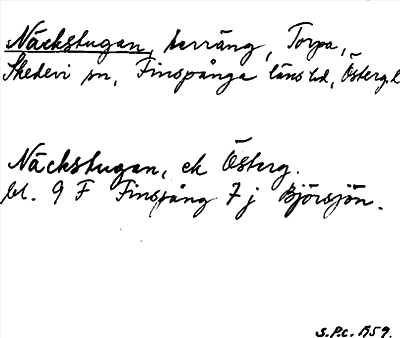 Näckstugan, terräng, Torpa,
Skedevi sn, Finspånga läns hd, Österg.l
Näckstugan, ek Österg.
bl. 9 F Finspång 7 j Björsjön.
S.P.C. 1959.